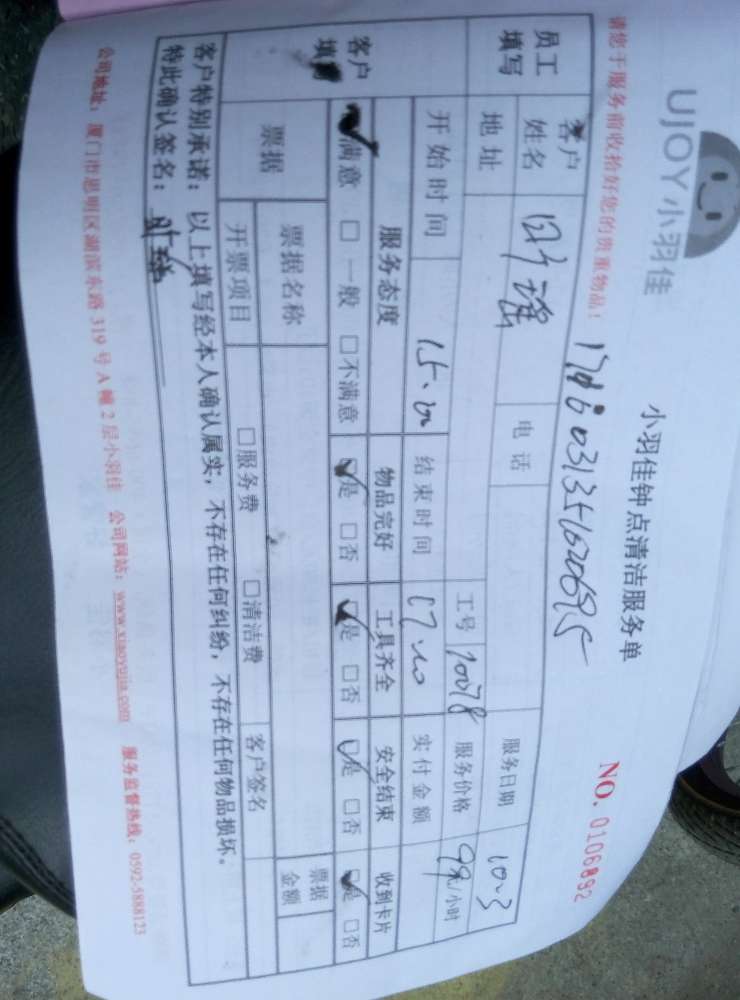 UJOY 小羽佳
小羽佳钟点清洁服务单
NO. 0106892
请您于服务前收拾好您的贵重物品！
员工填写
客户姓名
电话
服务日期 10.3
地址
工号 10078
服务价格 99元/小时
开始时间 15.00
结束时间 17.00
实付金额
客户填写
服务态度 物品完好 工具齐全 安全结束 收到卡片
☑满意 □一般 □不满意 ☑是 □否 ☑是 □否 ☑是 □否 ☑是 □否
票据
票据名称
票据金额
开票项目 □服务费 □清洁费 客户签名
客户特别承诺：以上填写经本人确认属实，不存在任何纠纷，不存在任何物品损坏。
特此确认签名：
公司地址：厦门市思明区湖滨东路319号A幢2层小羽佳 公司网站：www.xiaoyujia.com 服务监督热线：0592-5888123